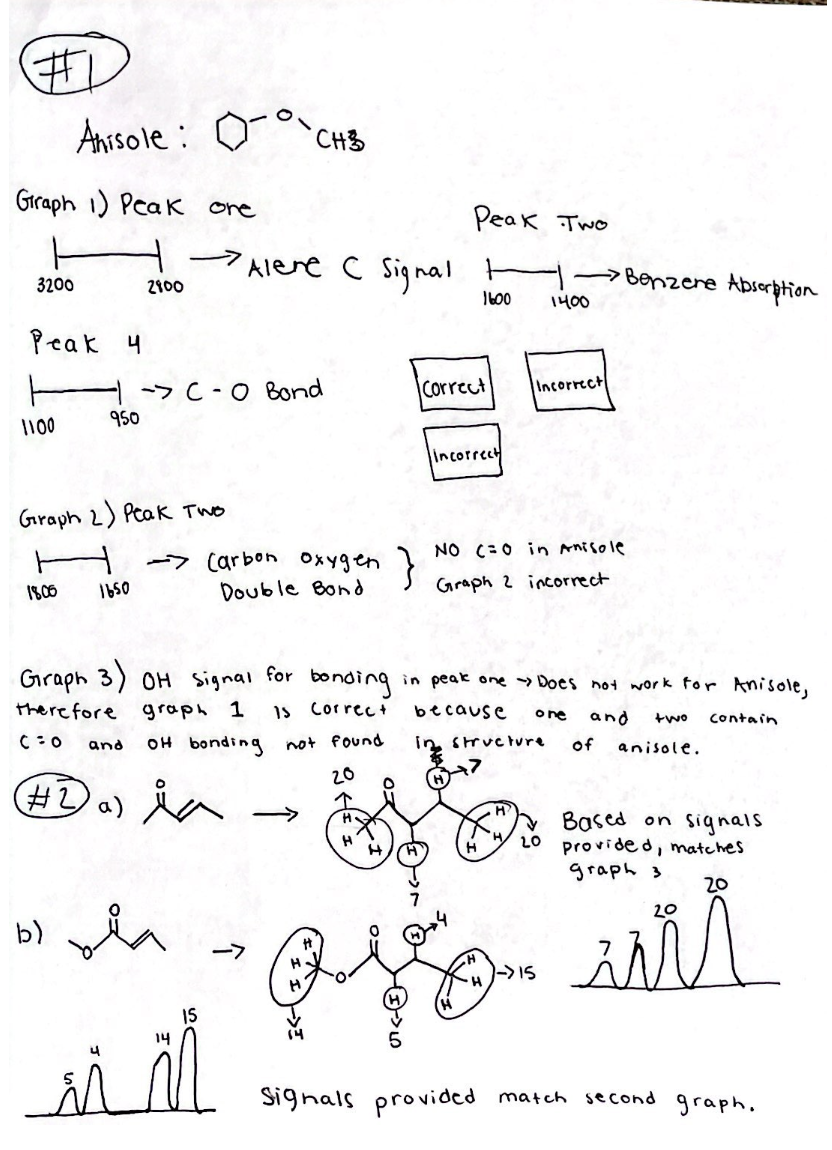 #1
Anisole: O CH3
Graph 1) Peak one
Peak Two
3200 2900 → Alene C Signal
1600 1400 → Benzene Absorption
Peak 4
1100 950 → C-O Bond
Correct Incorrect
Incorrect
Graph 2) Peak Two
1800 1650 → Carbon oxygen
Double Bond
NO C=O in Anisole
Graph 2 incorrect
Graph 3) OH signal for bonding in peak one → Does not work for Anisole,
therefore graph 1 is correct because one and two contain
C=O and OH bonding not found in structure of anisole.
#2 a) O →
20 O H → 7
H H H H H H 20
H
7
Based on signals
provided, matches
graph 3
7 7 20 20
b) O O →
H H H O O H → 4
H H H → 15
H
14 5
5 4 14 15
Signals provided match second graph.